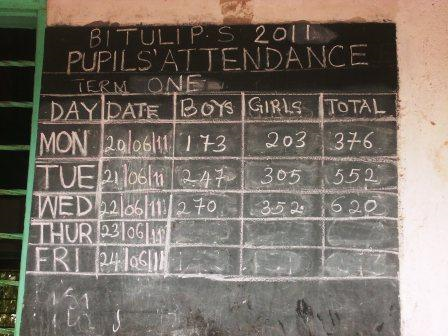 BITULIP'S 2011
PUPILS' ATTENDANCE
TERM ONE
DAY DATE BOYS GIRLS TOTAL
MON 20/06/11 173 203 376
TUE 21/06/11 247 305 552
WED 22/06/11 270 352 620
THUR 23/06/11
FRI 24/06/11